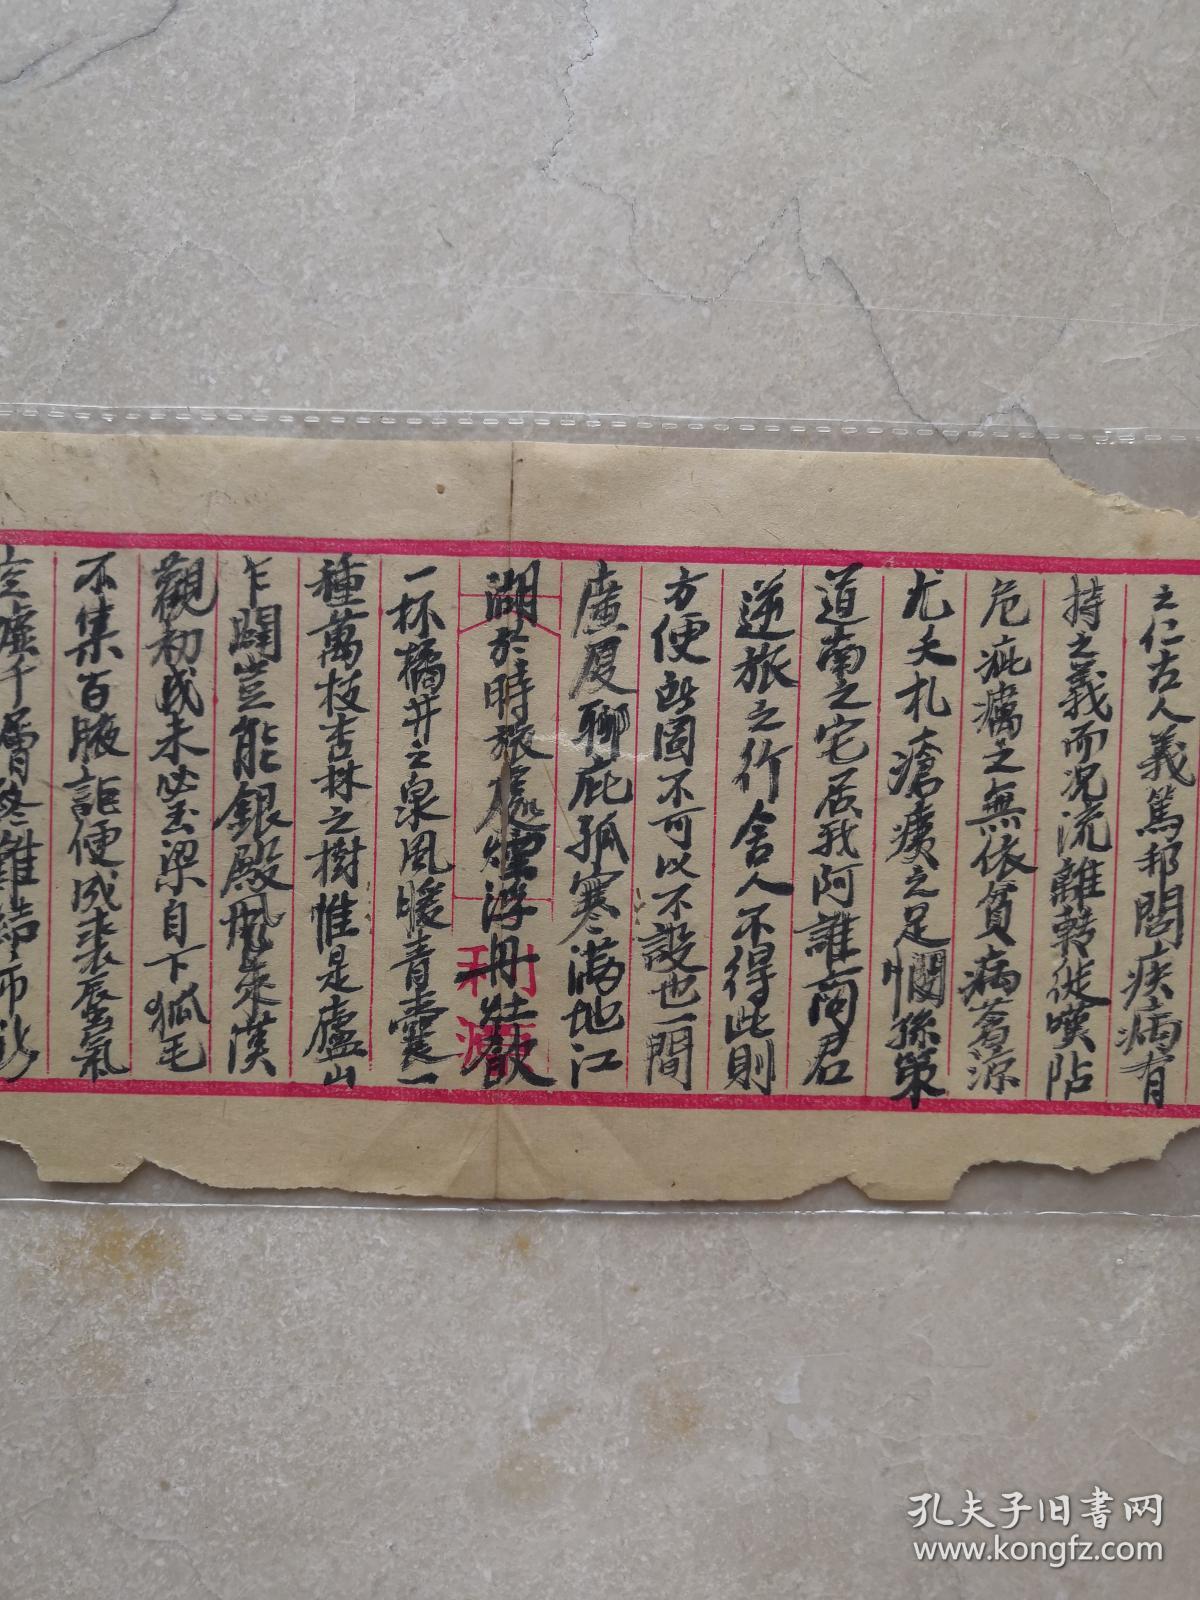 之仁古人義篤邦閭疾病有
持之義而况流離轉徙嘆阽
危疵癘之無依貧病蒼涼
尤夭札瘡痍之足憫孫策
道南之宅居我阿誰商君
逆旅之行舍人不得此則
方便所固不可以不設也一間
廣厦聊庇孤寒滿地江
湖於時旅處煙浮丹竈歃
一杯橘井之泉風暖青囊一
種萬枝杏林之樹惟是廬山
乍闢豈能銀殿飛來漢
觀初成未必玉梁自下狐毛
不集百腋詎便成裘蜃氣
空嘘千層終難結市
利源
孔夫子旧书网
www.kongfz.com